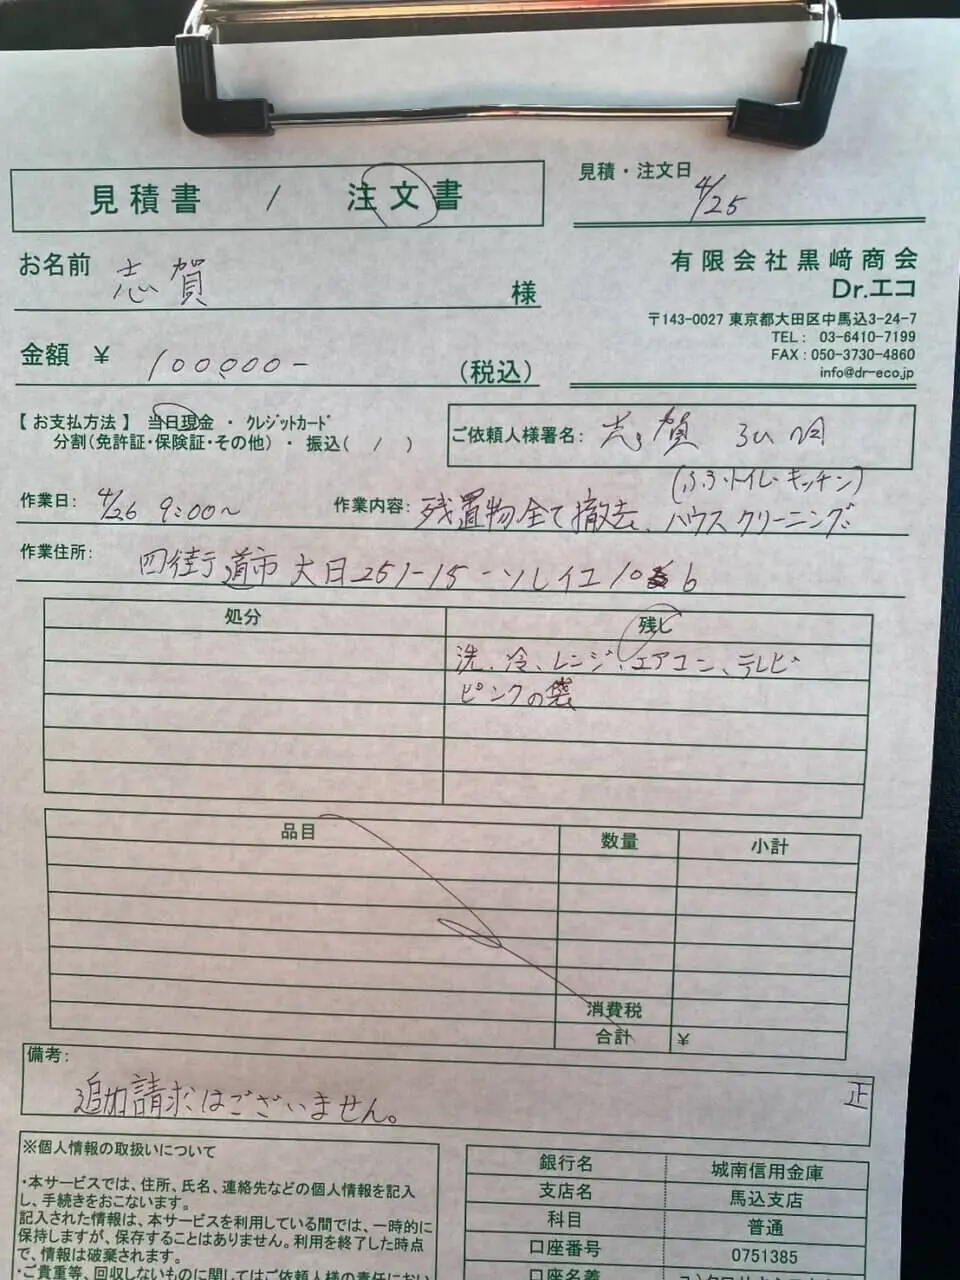 見積書 / 注文書
見積・注文日 4/25
お名前 志賀 様
有限会社黒﨑商会
Dr.エコ
〒143-0027 東京都大田区中馬込3-24-7
TEL: 03-6410-7199
FAX:050-3730-4860
info@dr-eco.jp
金額 ¥ 100000- (税込)
【お支払方法】 当日現金 ・ クレジットカード
分割(免許証・保険証・その他) ・ 振込( / )
ご依頼人様署名: 志賀
作業日: 4/26 9:00~
(ふろ・トイレ・キッチン)
作業内容: 残置物全て撤去、ハウスクリーニング
作業住所: 四街道市大日251-15-ソレイユ106
処分
残し
洗、冷、レンジ、エアコン、テレビ
ピンクの袋
品目 数量 小計
消費税
合計 ¥
備考:
追加請求はございません。
正
※個人情報の取扱いについて
・本サービスでは、住所、氏名、連絡先などの個人情報を記入
し、手続きをおこないます。
記入された情報は、本サービスを利用している間では、一時的に
保持しますが、保存することはありません。利用を終了した時点
で、情報は破棄されます。
・ご貴重等、回収しないものに関してはご依頼人様の責任におい
銀行名 城南信用金庫
支店名 馬込支店
科目 普通
口座番号 0751385
口座名義